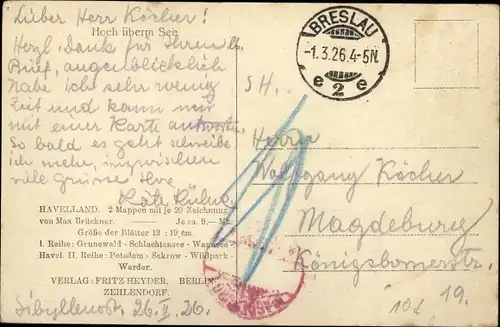 Lieber Herr Köcher!
Hoch überm See
Herzl. Dank für Ihren lb.
Brief, augenblicklich
habe ich sehr wenig
Zeit und kann nur
mit einer Karte antworten.
So bald es geht schreibe
ich mehr, inzwischen
viele Grüsse Ihre
Käte
HAVELLAND. 2 Mappen mit je 20 Zeichnung
von Max Brückner. Je ca. 9.— Mk.
Größe der Blätter 13 : 19 cm.
I. Reihe: Grunewald - Schlachtensee - Wannsee
Havel. II. Reihe: Potsdam - Sakrow - Wildpark
Werder.
VERLAG: FRITZ HEYDER, BERLIN
ZEHLENDORF.
Sibyllenort 26. II. 26.
BRESLAU
-1.3.26.4-5N.
e 2 e
Herrn
Wolfgang Köcher
Magdeburg
Königsbornerstr.
19.